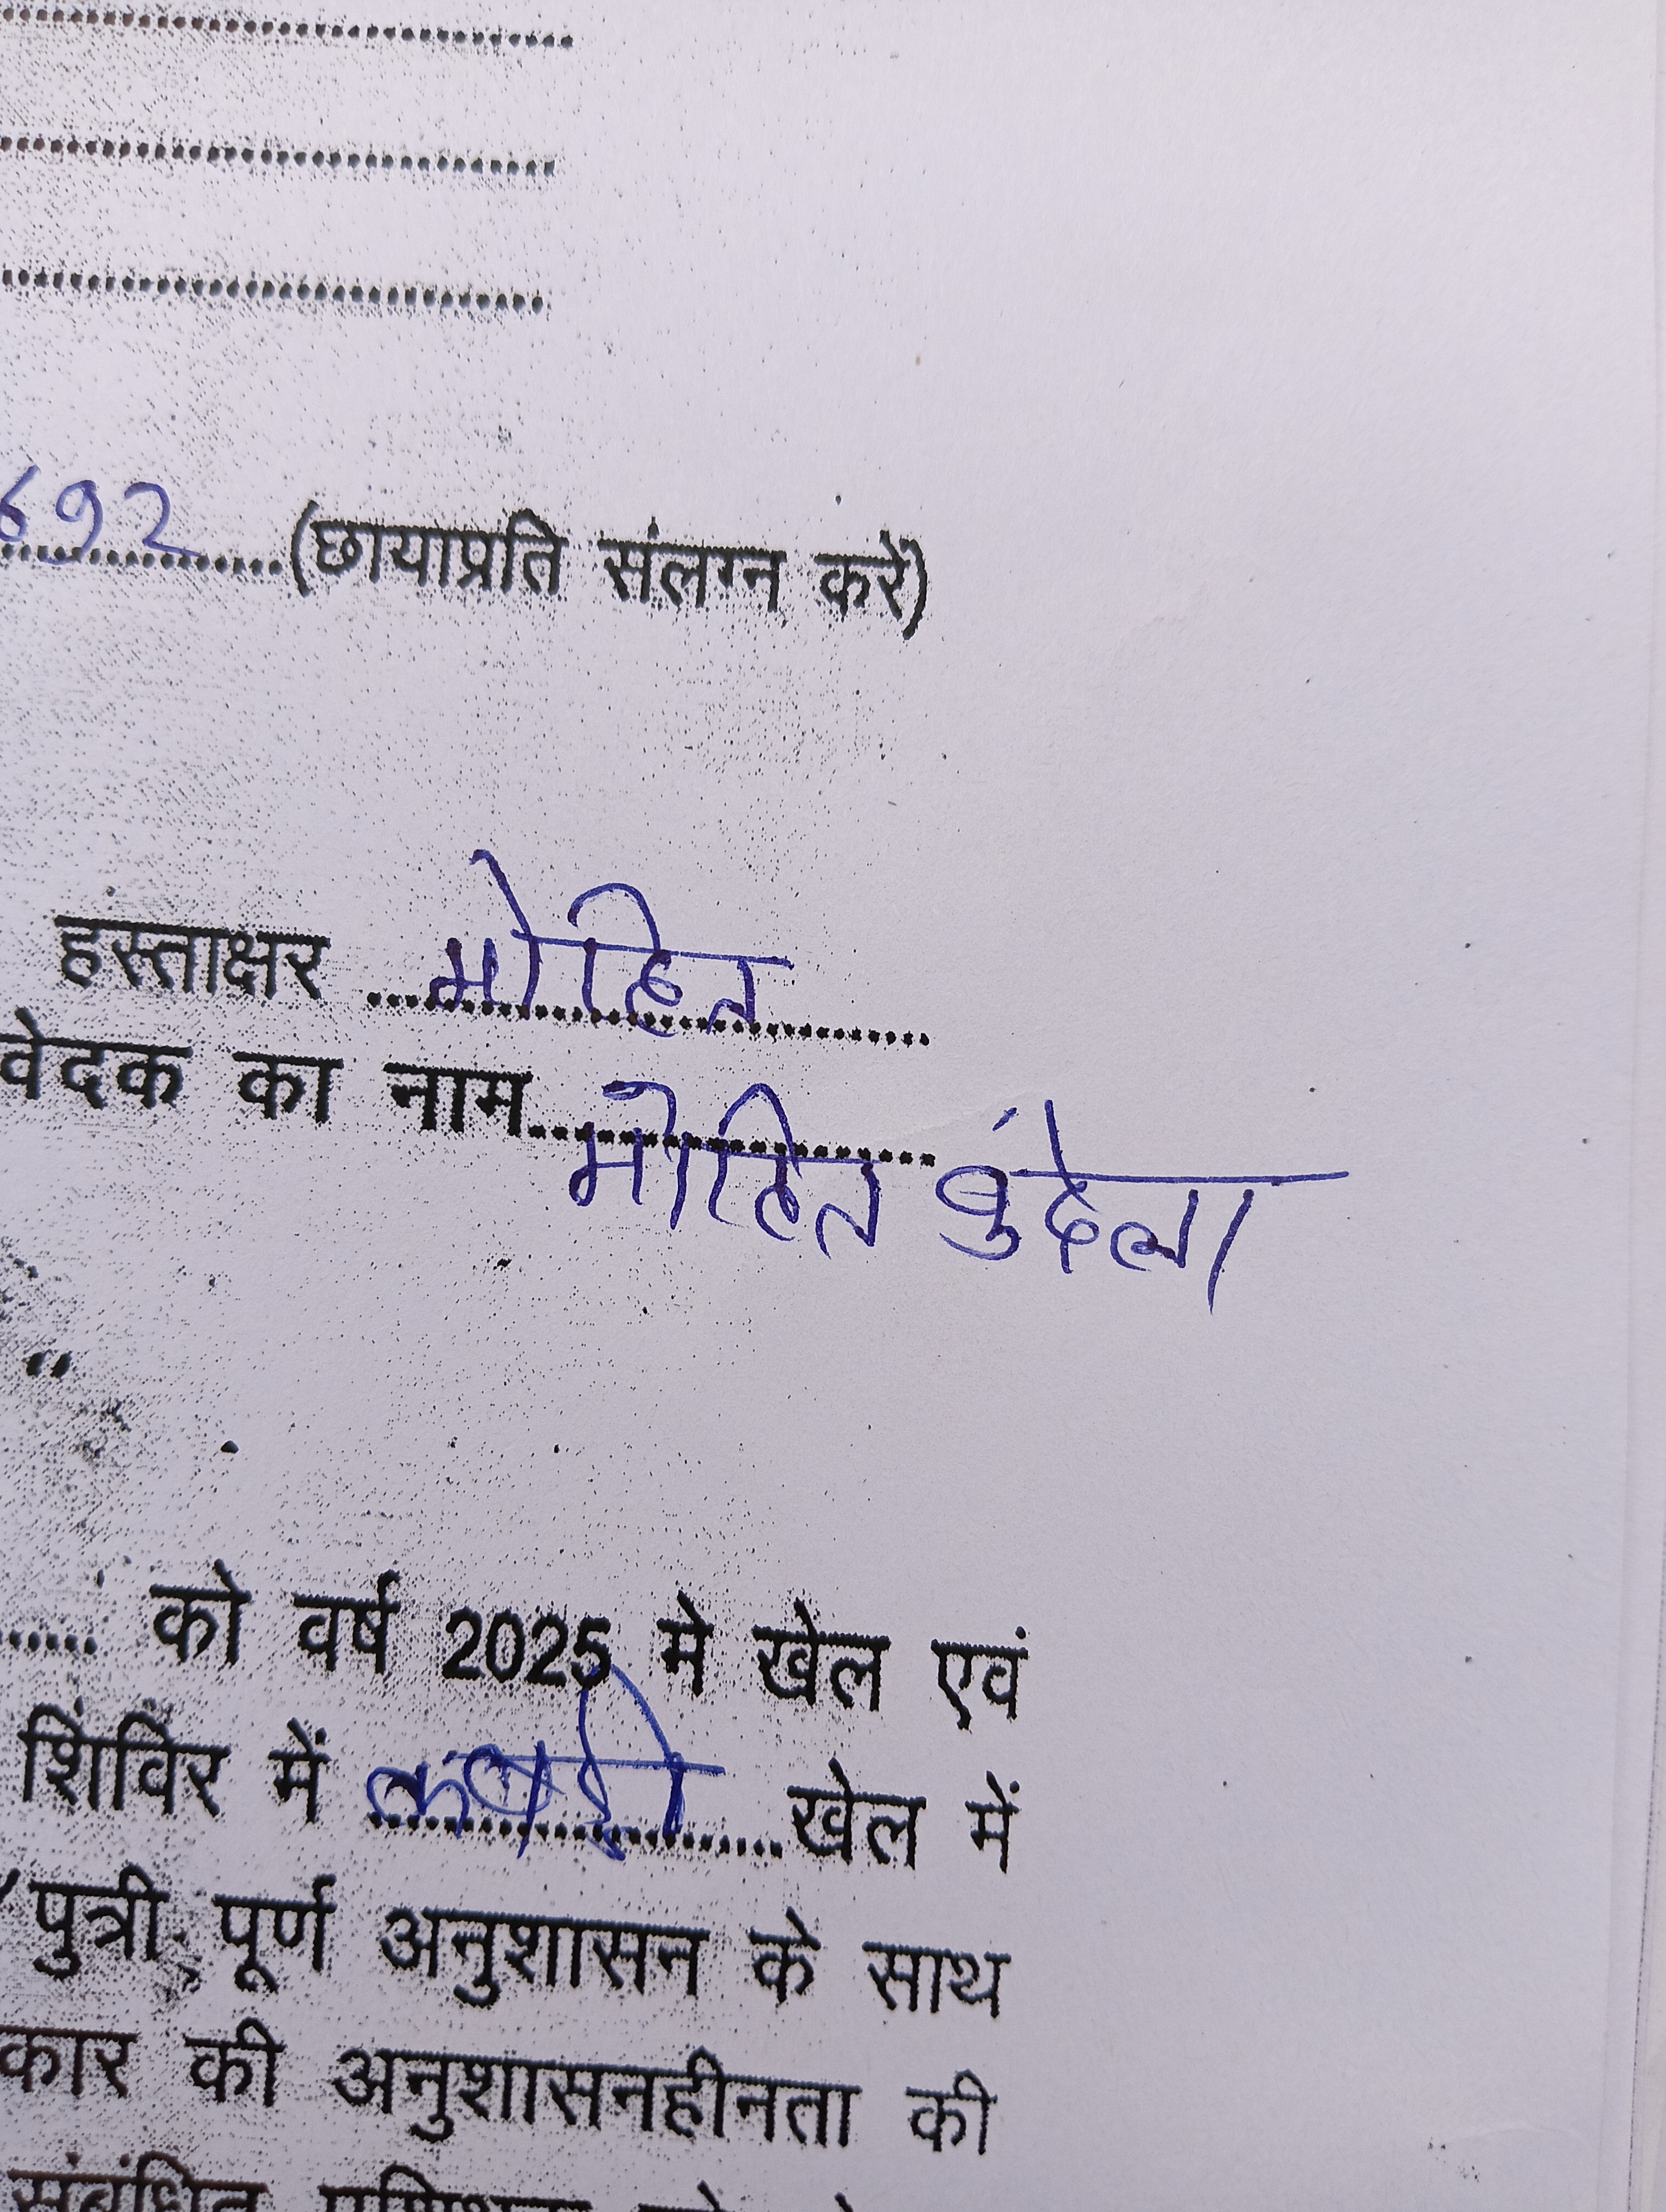 692 (छायाप्रति संलग्न करें)
हस्ताक्षर मोहित
वेदक का नाम मोहित बुंदेला
"
को वर्ष 2025 मे खेल एवं
शिविर में कबड्डी खेल में
पुत्री पूर्ण अनुशासन के साथ
कार की अनुशासनहीनता की
संबंधित